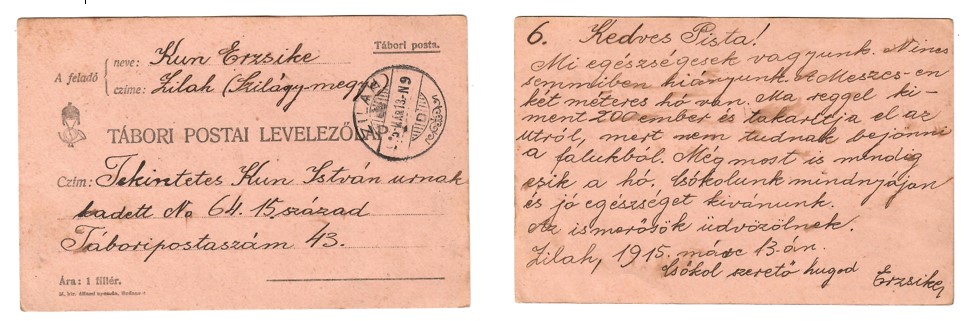 Tábori posta.
A feladó
neve: Kun Erzsike
czime: Zilah (Szilágy-megy
TÁBORI POSTAI LEVELEZŐLAP
ZILAH
Czim: Tekintetes Kun István urnak
kadett No 64. 15 század
Táboripostaszám 43.
Ára: 1 fillér.
6. Kedves Pista!
Mi egészségesek vagyunk. Nincs
semmiben hiányunk. A Meszes-en
két méteres hó van. Ma reggel ki-
ment 200 ember és takarítja el az
Utról, mert nem tudnak bejönni
a falukból. Még most is mindig
esik a hó. Csókolunk mindnyájan
és jó egészséget kivánunk.
Az ismerősök üdvözölnek.
Zilah, 1915. márc 13-án.
Csókol szerető hugod Erzsike